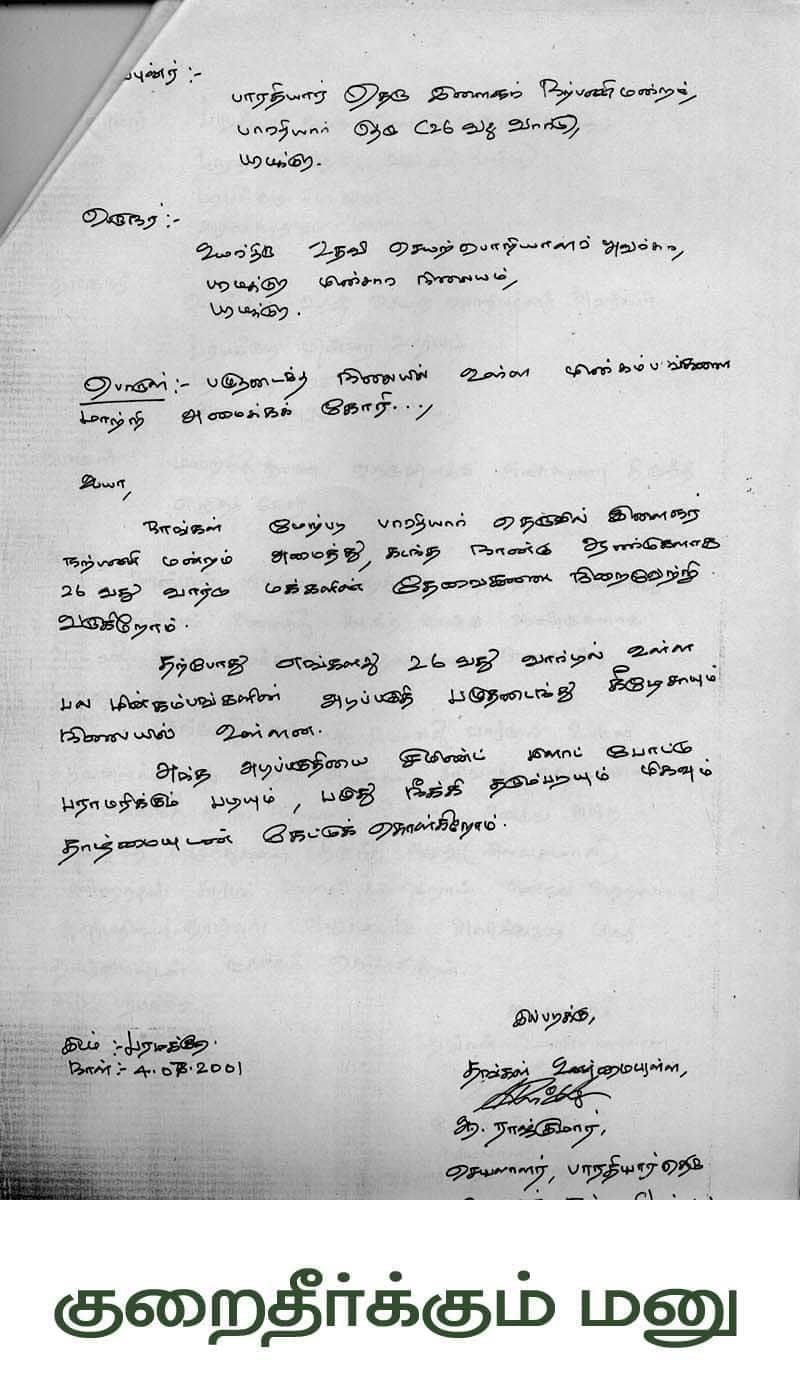 ப்புனர் :-
பாரதியார் தெரு இளைஞர் நற்பணி மன்றம்,
பாரதியார் தெரு (26 வது வார்டு),
பரமக்குடி.
பெருநர் :-
உயர்திரு உதவி செயற்பொறியாளர் அவர்கள்,
பரமக்குடி மின்சார நிலையம்,
பரமக்குடி.
பொருள் :- பழுதடைந்த நிலையில் உள்ள மின்கம்பங்களை
மாற்றி அமைக்கக் கோரி...,
ஐயா,
நாங்கள் மேற்படி பாரதியார் தெருவில் இளைஞர்
நற்பணி மன்றம் அமைத்து, கடந்த நான்கு ஆண்டுகளாக
26 வது வார்டு மக்களின் தேவைகளை நிறைவேற்றி
வருகிறோம்.
தற்போது எங்களது 26 வது வார்டில் உள்ள
பல மின்கம்பங்களின் அடிப்பகுதி பழுதடைந்து கீழேசாயும்
நிலையில் உள்ளன.
அந்த அடிப்பகுதியை சிமிண்ட் போட்டு
பராமரிக்கும் படியும், பழுது நீக்கி தரும்படியும் மிகவும்
தாழ்மையுடன் கேட்டுக் கொள்கிறோம்.
இப்படிக்கு,
இடம் :- பரமக்குடி.
நாள் :- 4.08.2001
தங்கள் உண்மையுள்ள,
ஆ. ராஜ்குமார்,
செயலாளர், பாரதியார் தெரு
குறைதீர்க்கும் மனு